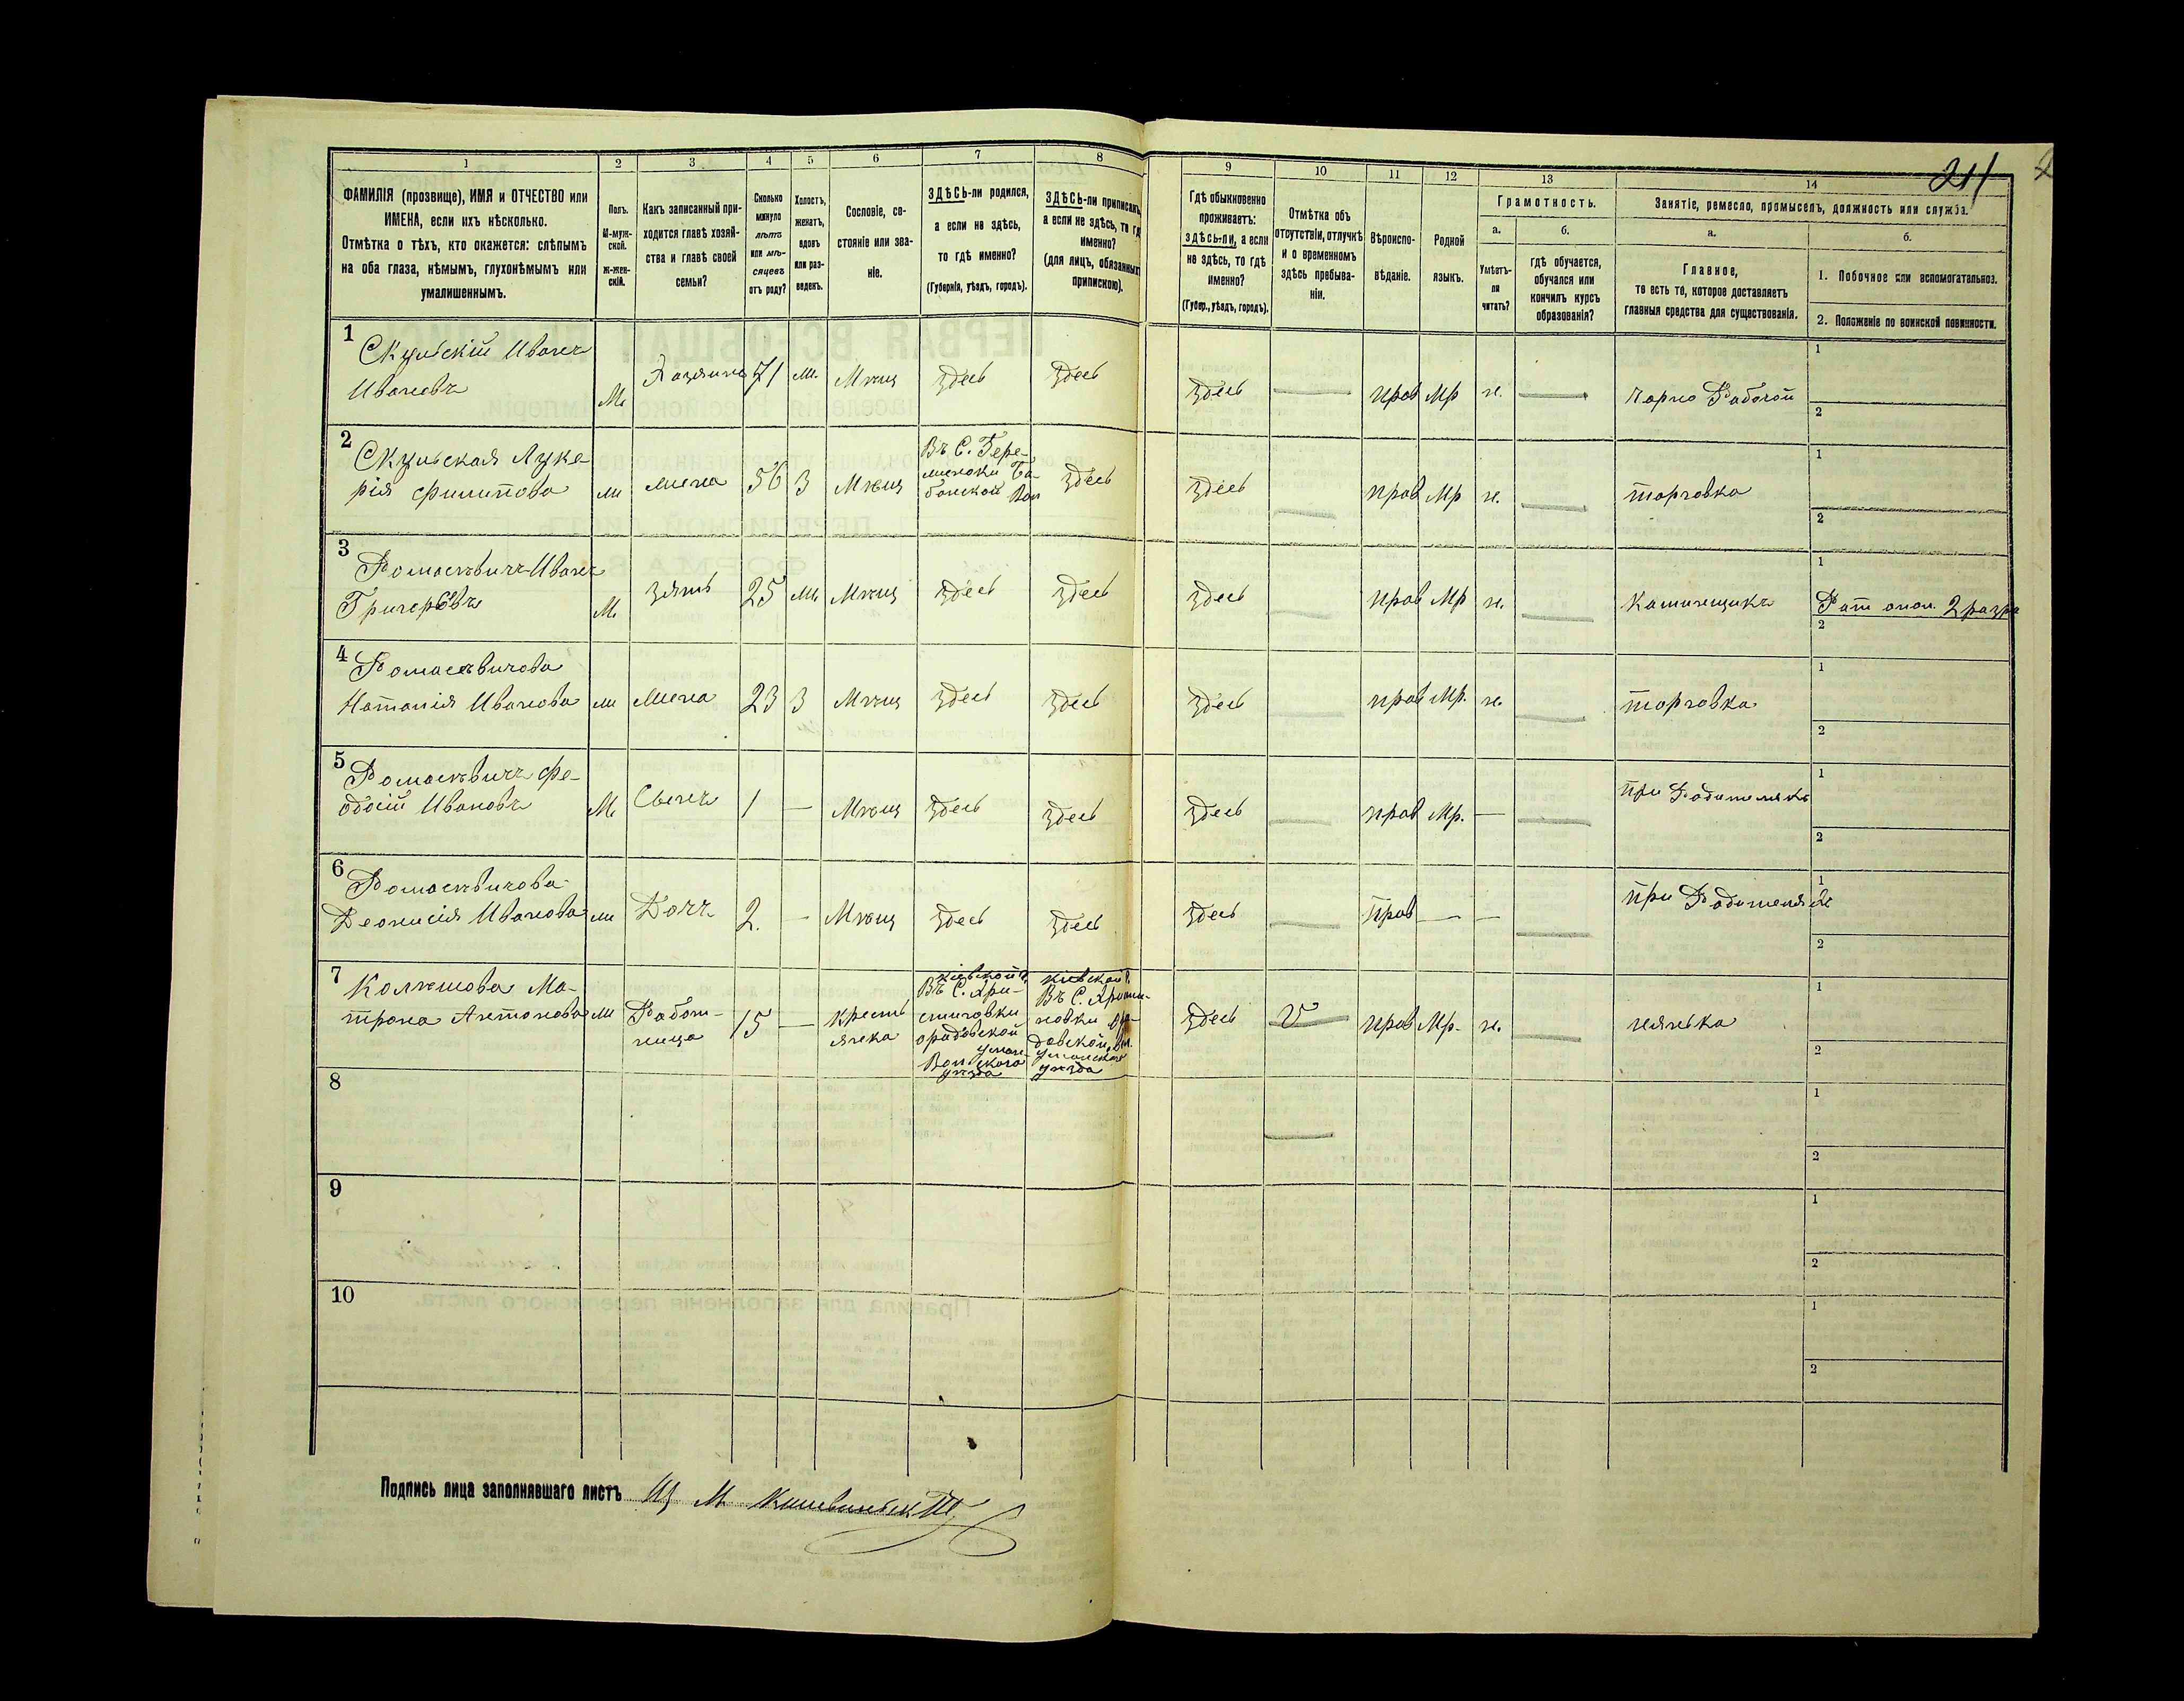 211
1 2 3 4 5 6 7 8 9 10 11 12 13 14
ФАМИЛІЯ (прозвище), ИМЯ и ОТЧЕСТВО или
ИМЕНА, если ихъ нѣсколько.
Отмѣтка о тѣхъ, кто окажется: слѣпымъ
на оба глаза, нѣмымъ, глухонѣмымъ или
умалишеннымъ.
Полъ.
М-муж-
ской.
Ж-жен-
скій.
Какъ записанный при-
ходится главѣ хозяй-
ства и главѣ своей
семьи?
Сколько
минуло
лѣтъ
или мѣ-
сяцевъ
отъ роду?
Холостъ,
женатъ,
вдовъ
или раз-
веденъ.
Сословіе, со-
стояніе или зва-
ніе.
ЗДѢСЬ-ли родился,
а если не здѣсь,
то гдѣ именно?
(Губернія, уѣздъ, городъ).
ЗДѢСЬ-ли приписанъ,
а если не здѣсь, то гдѣ
именно?
(для лицъ, обязанныхъ
припискою).
Гдѣ обыкновенно
проживаетъ:
здѣсь-ли, а если
не здѣсь, то гдѣ
именно?
(Губер., уѣздъ, городъ).
Отмѣтка объ
отсутствіи, отлучкѣ
и о временномъ
здѣсь пребыва-
ніи.
Вѣроиспо-
вѣданіе.
Родной
языкъ.
Грамотность.
а.
Умѣетъ-
ли
читать?
б.
гдѣ обучается,
обучался или
кончилъ курсъ
образованія?
Занятіе, ремесло, промыселъ, должность или служба.
а.
Главное,
то есть то, которое доставляетъ
главныя средства для существованія.
б.
1. Побочное или вспомогательное.
2. Положеніе по воинской повинности.
1
Иванъ
Ивановъ
М. Хозяинъ 71 ж. Мѣщ здесь здесь здесь — прав Мр н. — Чорно Рабочой
1
2
2
Луке-
рія Филипова
ж жена 56 З Мѣщ
Въ С. Бере-
здесь здесь — прав Мр н. — торговка
1
2
3
Ромаскевичъ Иванъ
Григоровъ
М. зять 25 ж. Мѣщ здесь здесь здесь — прав Мр н. —
1
Рат опол. 2 разря
2
4
Ромаскевичова
Наталія Иванова ж жена 23 З Мѣщ здесь здесь здесь — прав Мр. н. — торговка
1
2
5
Ромаскевичъ Фе-
одосій Ивановъ М. Сынъ 1 — Мѣщ здесь здесь здесь — прав Мр. — — при Родителяхъ
1
2
6
Ромаскевичова
Деонисія Иванова ж Дочъ 2. — Мѣщ здесь здесь здесь — Прав — — — при Родителяхъ
1
2
7
Ма-
трона Антонова ж
Работ-
ница
15 —
кресть
янка
кіевской г.
Въ С. Хри-
стиновки
орадовской
Вол уман-
ского
уѣзда
кіевской г.
Въ С. Христи-
новки ора-
довской вол.
уманского
уѣзда
здесь V прав Мр. н. — нянька
1
2
8
—
1
2
9
1
2
10
1
2
Подпись лица заполнявшаго листъ